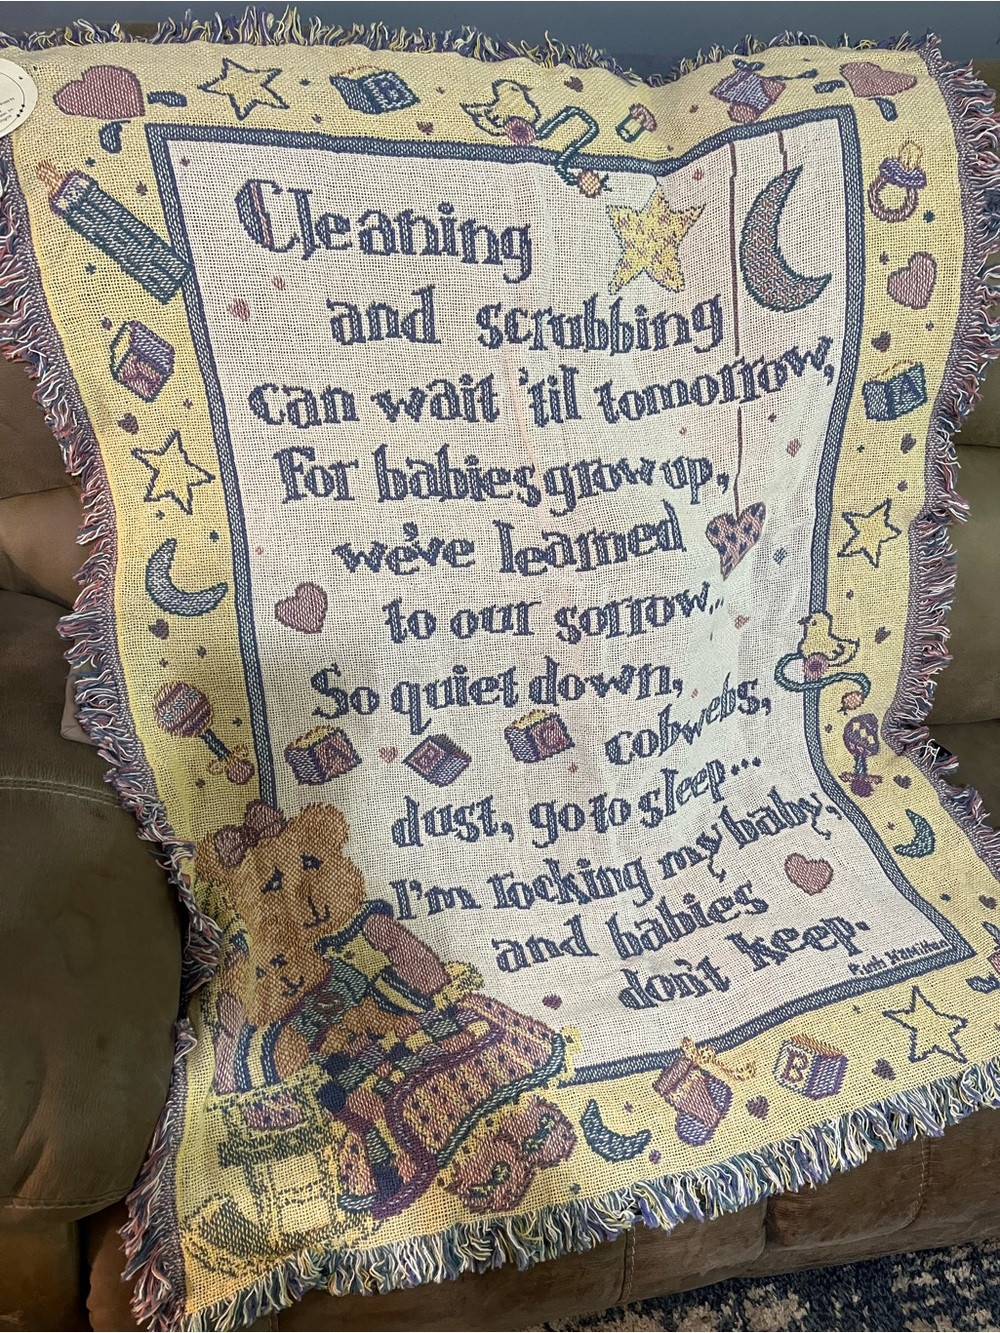 Cleaning
and scrubbing
can wait 'til tomorrow,
For babies grow up,
we've learned
to our sorrow...
So quiet down,
cobwebs,
dust, go to sleep...
I'm rocking my baby,
and babies
don't keep.
A
B